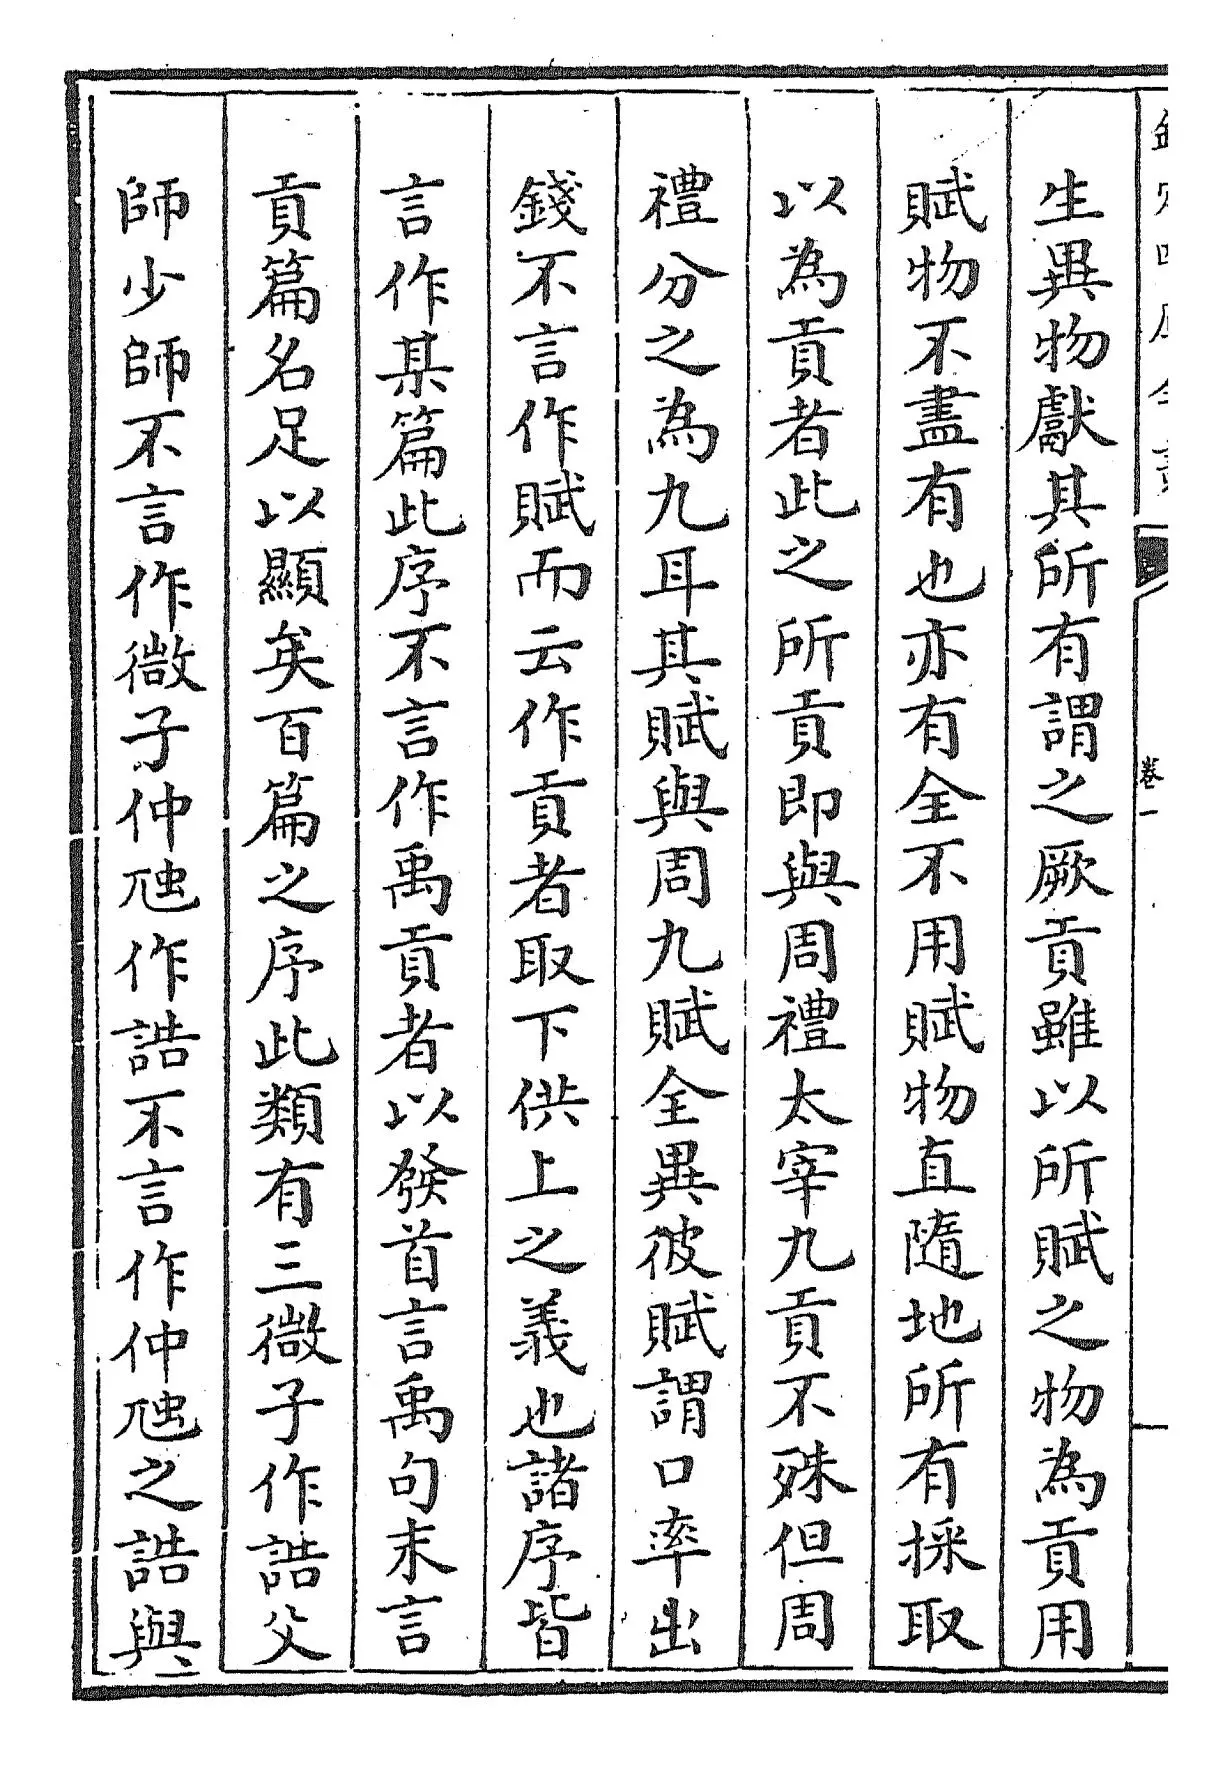 欽定四庫全書
卷一
生異物獻其所有謂之厥貢雖以所賦之物為貢用
賦物不盡有也亦有全不用賦物直隨地所有採取
以為貢者此之所貢即與周禮太宰九貢不殊但周
禮分之為九耳其賦與周九賦全異彼賦謂口率出
錢不言作賦而云作貢者取下供上之義也諸序皆
言作某篇此序不言作禹貢者以發首言禹句末言
貢篇名足以顯矣百篇之序此類有三微子作誥父
師少師不言作微子仲虺作誥不言作仲虺之誥與